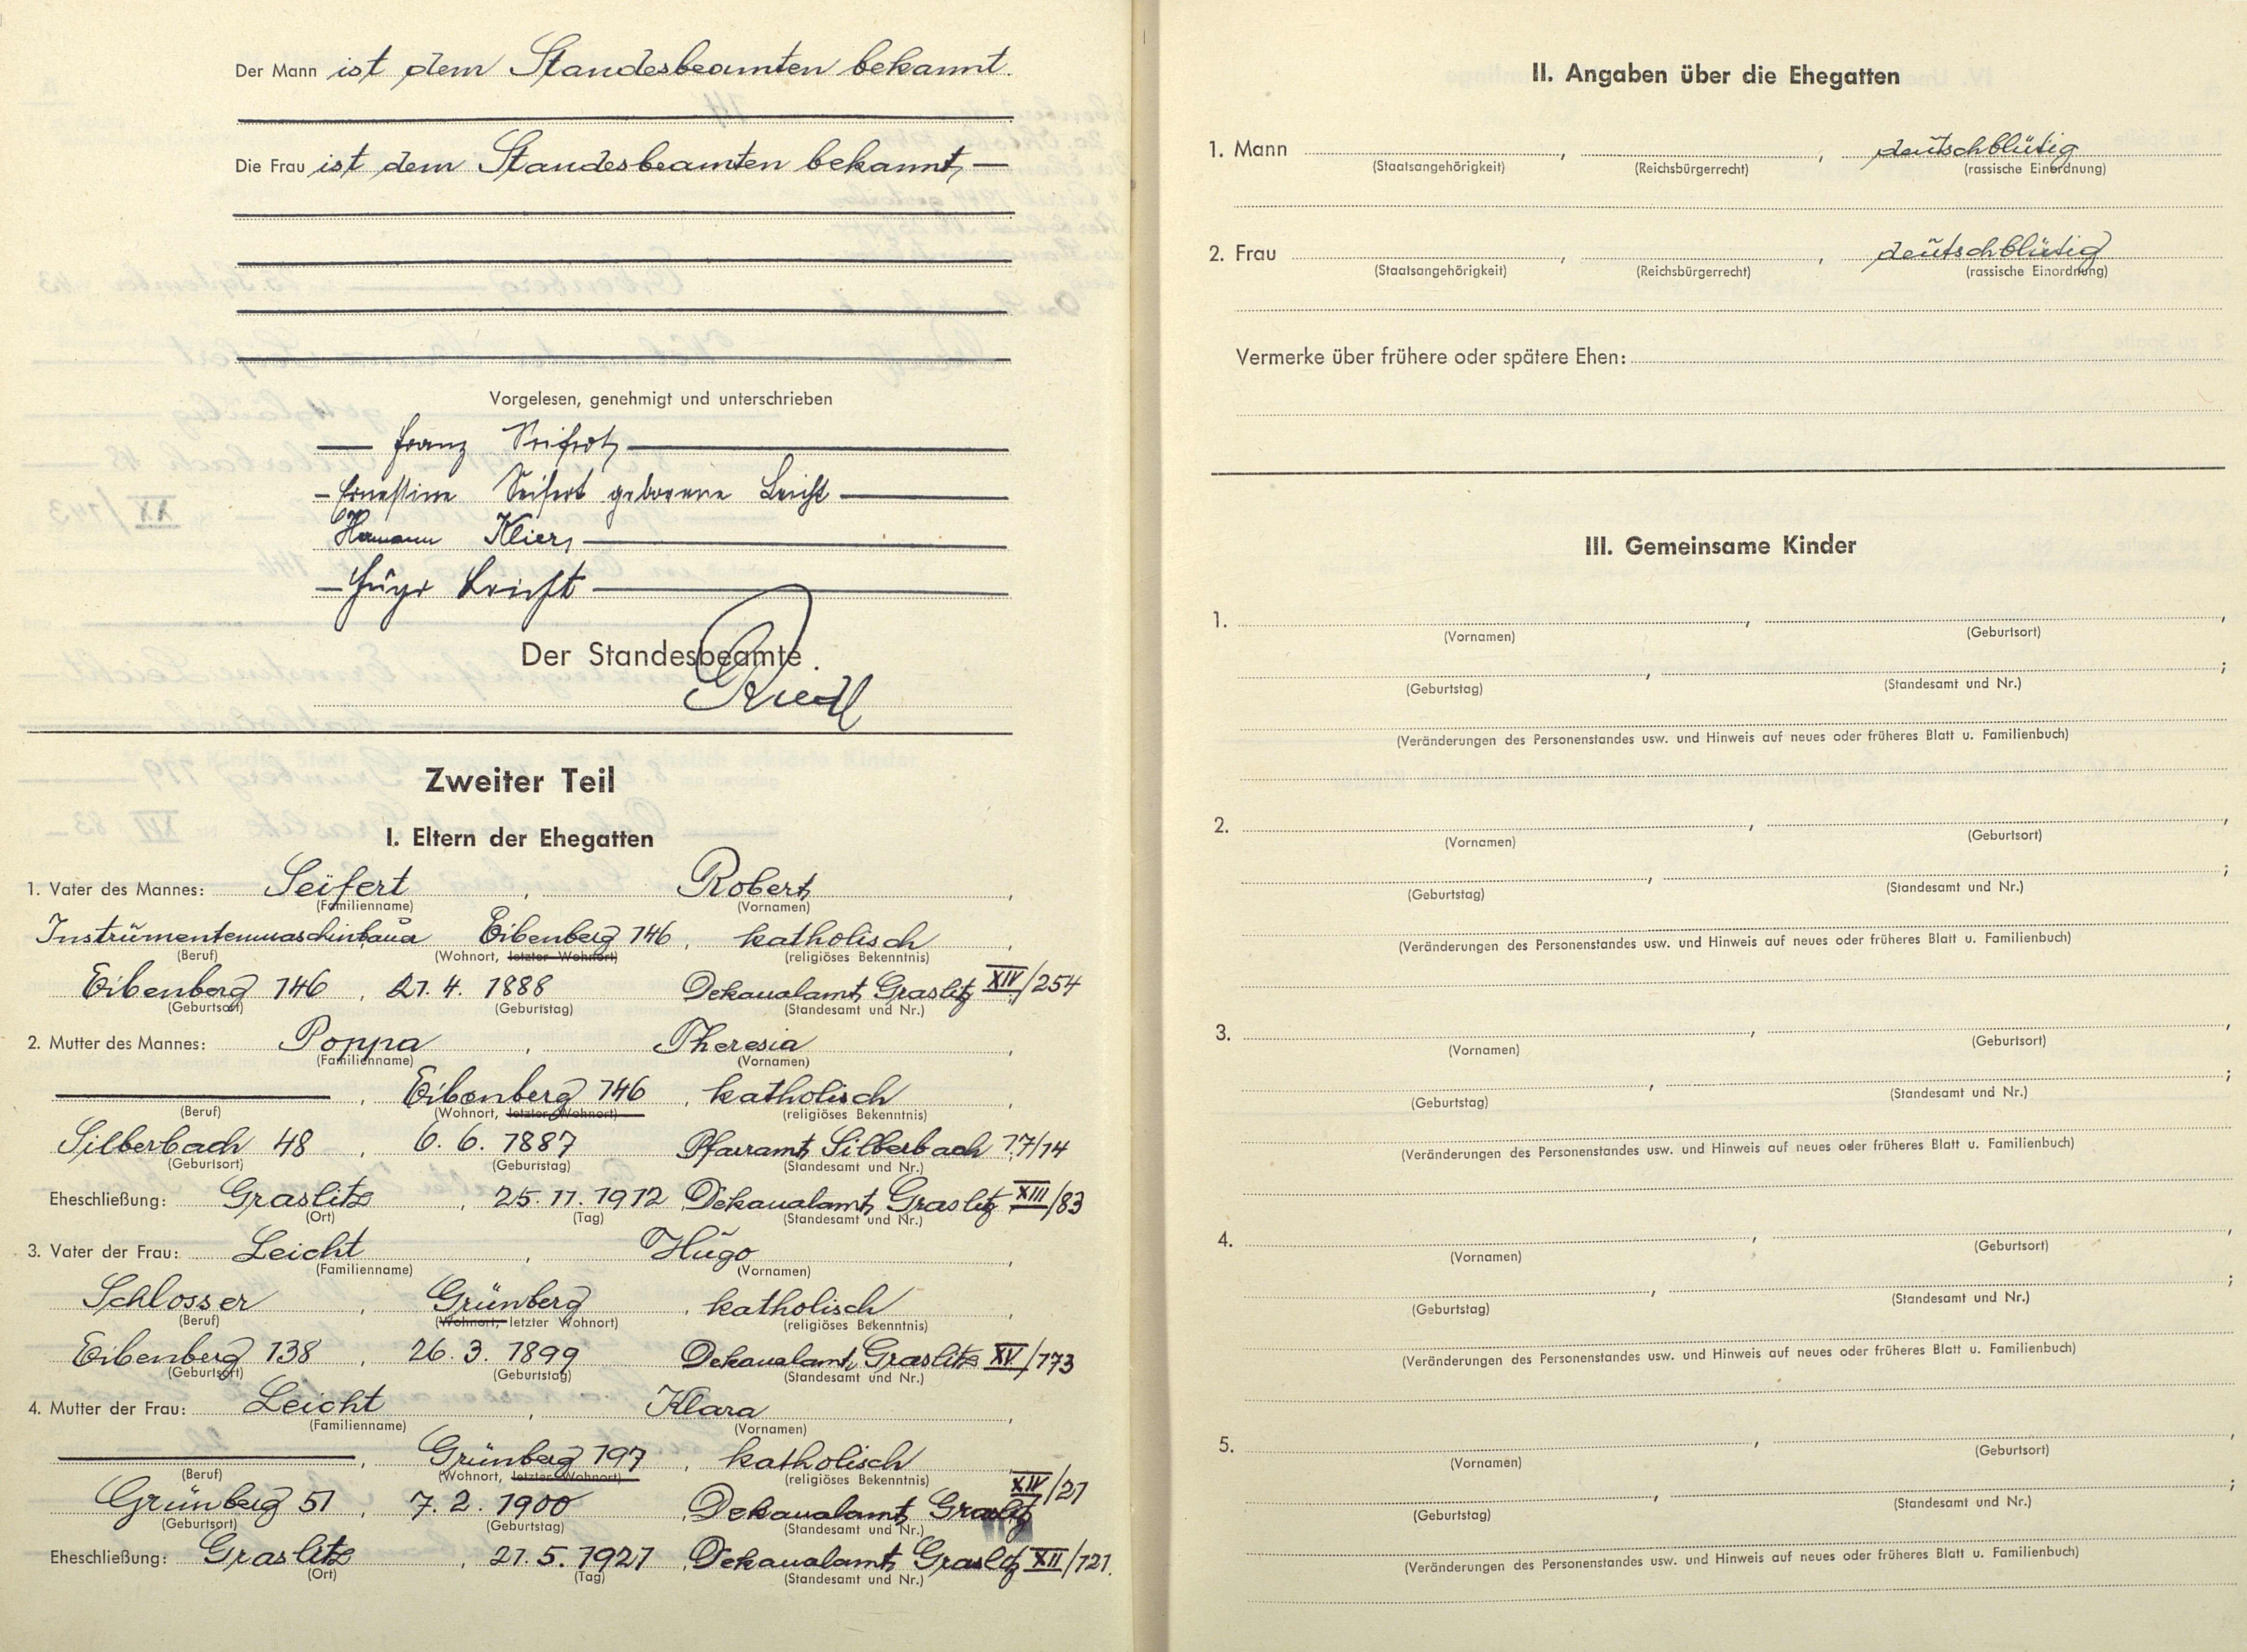 Der Mann ist dem Standesbeamten bekannt.
Die Frau ist dem Standesbeamten bekannt, —
Vorgelesen, genehmigt und unterschrieben
— Franz Seifert —
— Ernestine Seifert geborene Leicht —
Hermann Klier, —
— Hugo Leicht —
Der Standesbeamte.
Riedl
Zweiter Teil
I. Eltern der Ehegatten
1. Vater des Mannes: Seifert, Robert,
(Familienname) (Vornamen)
Instrumentenmaschinbauer Eibenberg 146, katholisch,
(Beruf) (Wohnort, letzter Wohnort) (religiöses Bekenntnis)
Eibenberg 146, 21. 4. 1888 Dekanalamt Graslitz XIV/254
(Geburtsort) (Geburtstag) (Standesamt und Nr.)
2. Mutter des Mannes: Poppa, Theresia,
(Familienname) (Vornamen)
—, Eibenberg 146, katholisch,
(Beruf) (Wohnort, letzter Wohnort) (religiöses Bekenntnis)
Silberbach 48, 6. 6. 1887 Pfarramt Silberbach 17/14
(Geburtsort) (Geburtstag) (Standesamt und Nr.)
Eheschließung: Graslitz, 25. 11. 1912, Dekanalamt Graslitz XIII/83
(Ort) (Tag) (Standesamt und Nr.)
3. Vater der Frau: Leicht, Hugo,
(Familienname) (Vornamen)
Schlosser, Grünberg, katholisch,
(Beruf) (Wohnort, letzter Wohnort) (religiöses Bekenntnis)
Eibenberg 138, 26. 3. 1899 Dekanalamt Graslitz XV/173
(Geburtsort) (Geburtstag) (Standesamt und Nr.)
4. Mutter der Frau: Leicht, Klara,
(Familienname) (Vornamen)
—, Grünberg 197, katholisch
(Beruf) (Wohnort, letzter Wohnort) (religiöses Bekenntnis)
Grünberg 51, 7. 2. 1900, Dekanalamt Graslitz XIV/21
(Geburtsort) (Geburtstag) (Standesamt und Nr.)
Eheschließung: Graslitz, 21. 5. 1921, Dekanalamt Graslitz XII/121.
(Ort) (Tag) (Standesamt und Nr.)
II. Angaben über die Ehegatten
1. Mann , , deutschblütig
(Staatsangehörigkeit) (Reichsbürgerrecht) (rassische Einordnung)
2. Frau , , deutschblütig
(Staatsangehörigkeit) (Reichsbürgerrecht) (rassische Einordnung)
Vermerke über frühere oder spätere Ehen:
III. Gemeinsame Kinder
1. , ,
(Vornamen) (Geburtsort)
, ;
(Geburtstag) (Standesamt und Nr.)
(Veränderungen des Personenstandes usw. und Hinweis auf neues oder früheres Blatt u. Familienbuch)
2. , ,
(Vornamen) (Geburtsort)
, ;
(Geburtstag) (Standesamt und Nr.)
(Veränderungen des Personenstandes usw. und Hinweis auf neues oder früheres Blatt u. Familienbuch)
3. , ,
(Vornamen) (Geburtsort)
, ;
(Geburtstag) (Standesamt und Nr.)
(Veränderungen des Personenstandes usw. und Hinweis auf neues oder früheres Blatt u. Familienbuch)
4. , ,
(Vornamen) (Geburtsort)
, ;
(Geburtstag) (Standesamt und Nr.)
(Veränderungen des Personenstandes usw. und Hinweis auf neues oder früheres Blatt u. Familienbuch)
5. , ,
(Vornamen) (Geburtsort)
, ;
(Geburtstag) (Standesamt und Nr.)
(Veränderungen des Personenstandes usw. und Hinweis auf neues oder früheres Blatt u. Familienbuch)